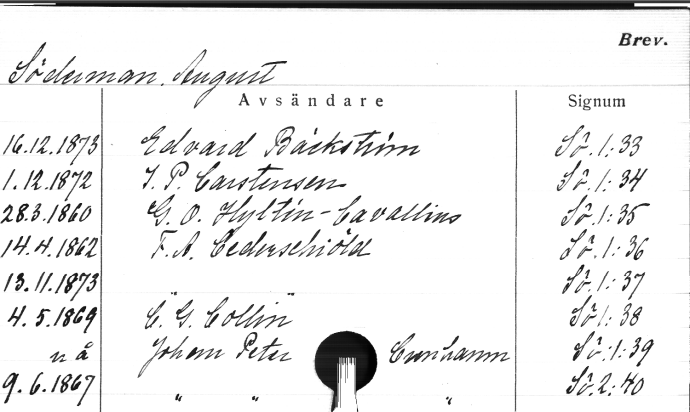 Brev.
Söderman, August
Avsändare Signum
16.12.1873 Edvard Bäckström Sö.1:33
1.12.1872 J. P. Carstensen Sö.1:34
28.3.1860 G. O. Hyltén-Cavallius Sö.1:35
14.4.1862 F. A. Cederschiöld Sö.1:36
13.11.1873 " " Sö.1:37
4.5.1869 C. G. Collin Sö.1:38
u å Johan Peter Cronhamm Sö.1:39
9.6.1867 " " " Sö.2:40